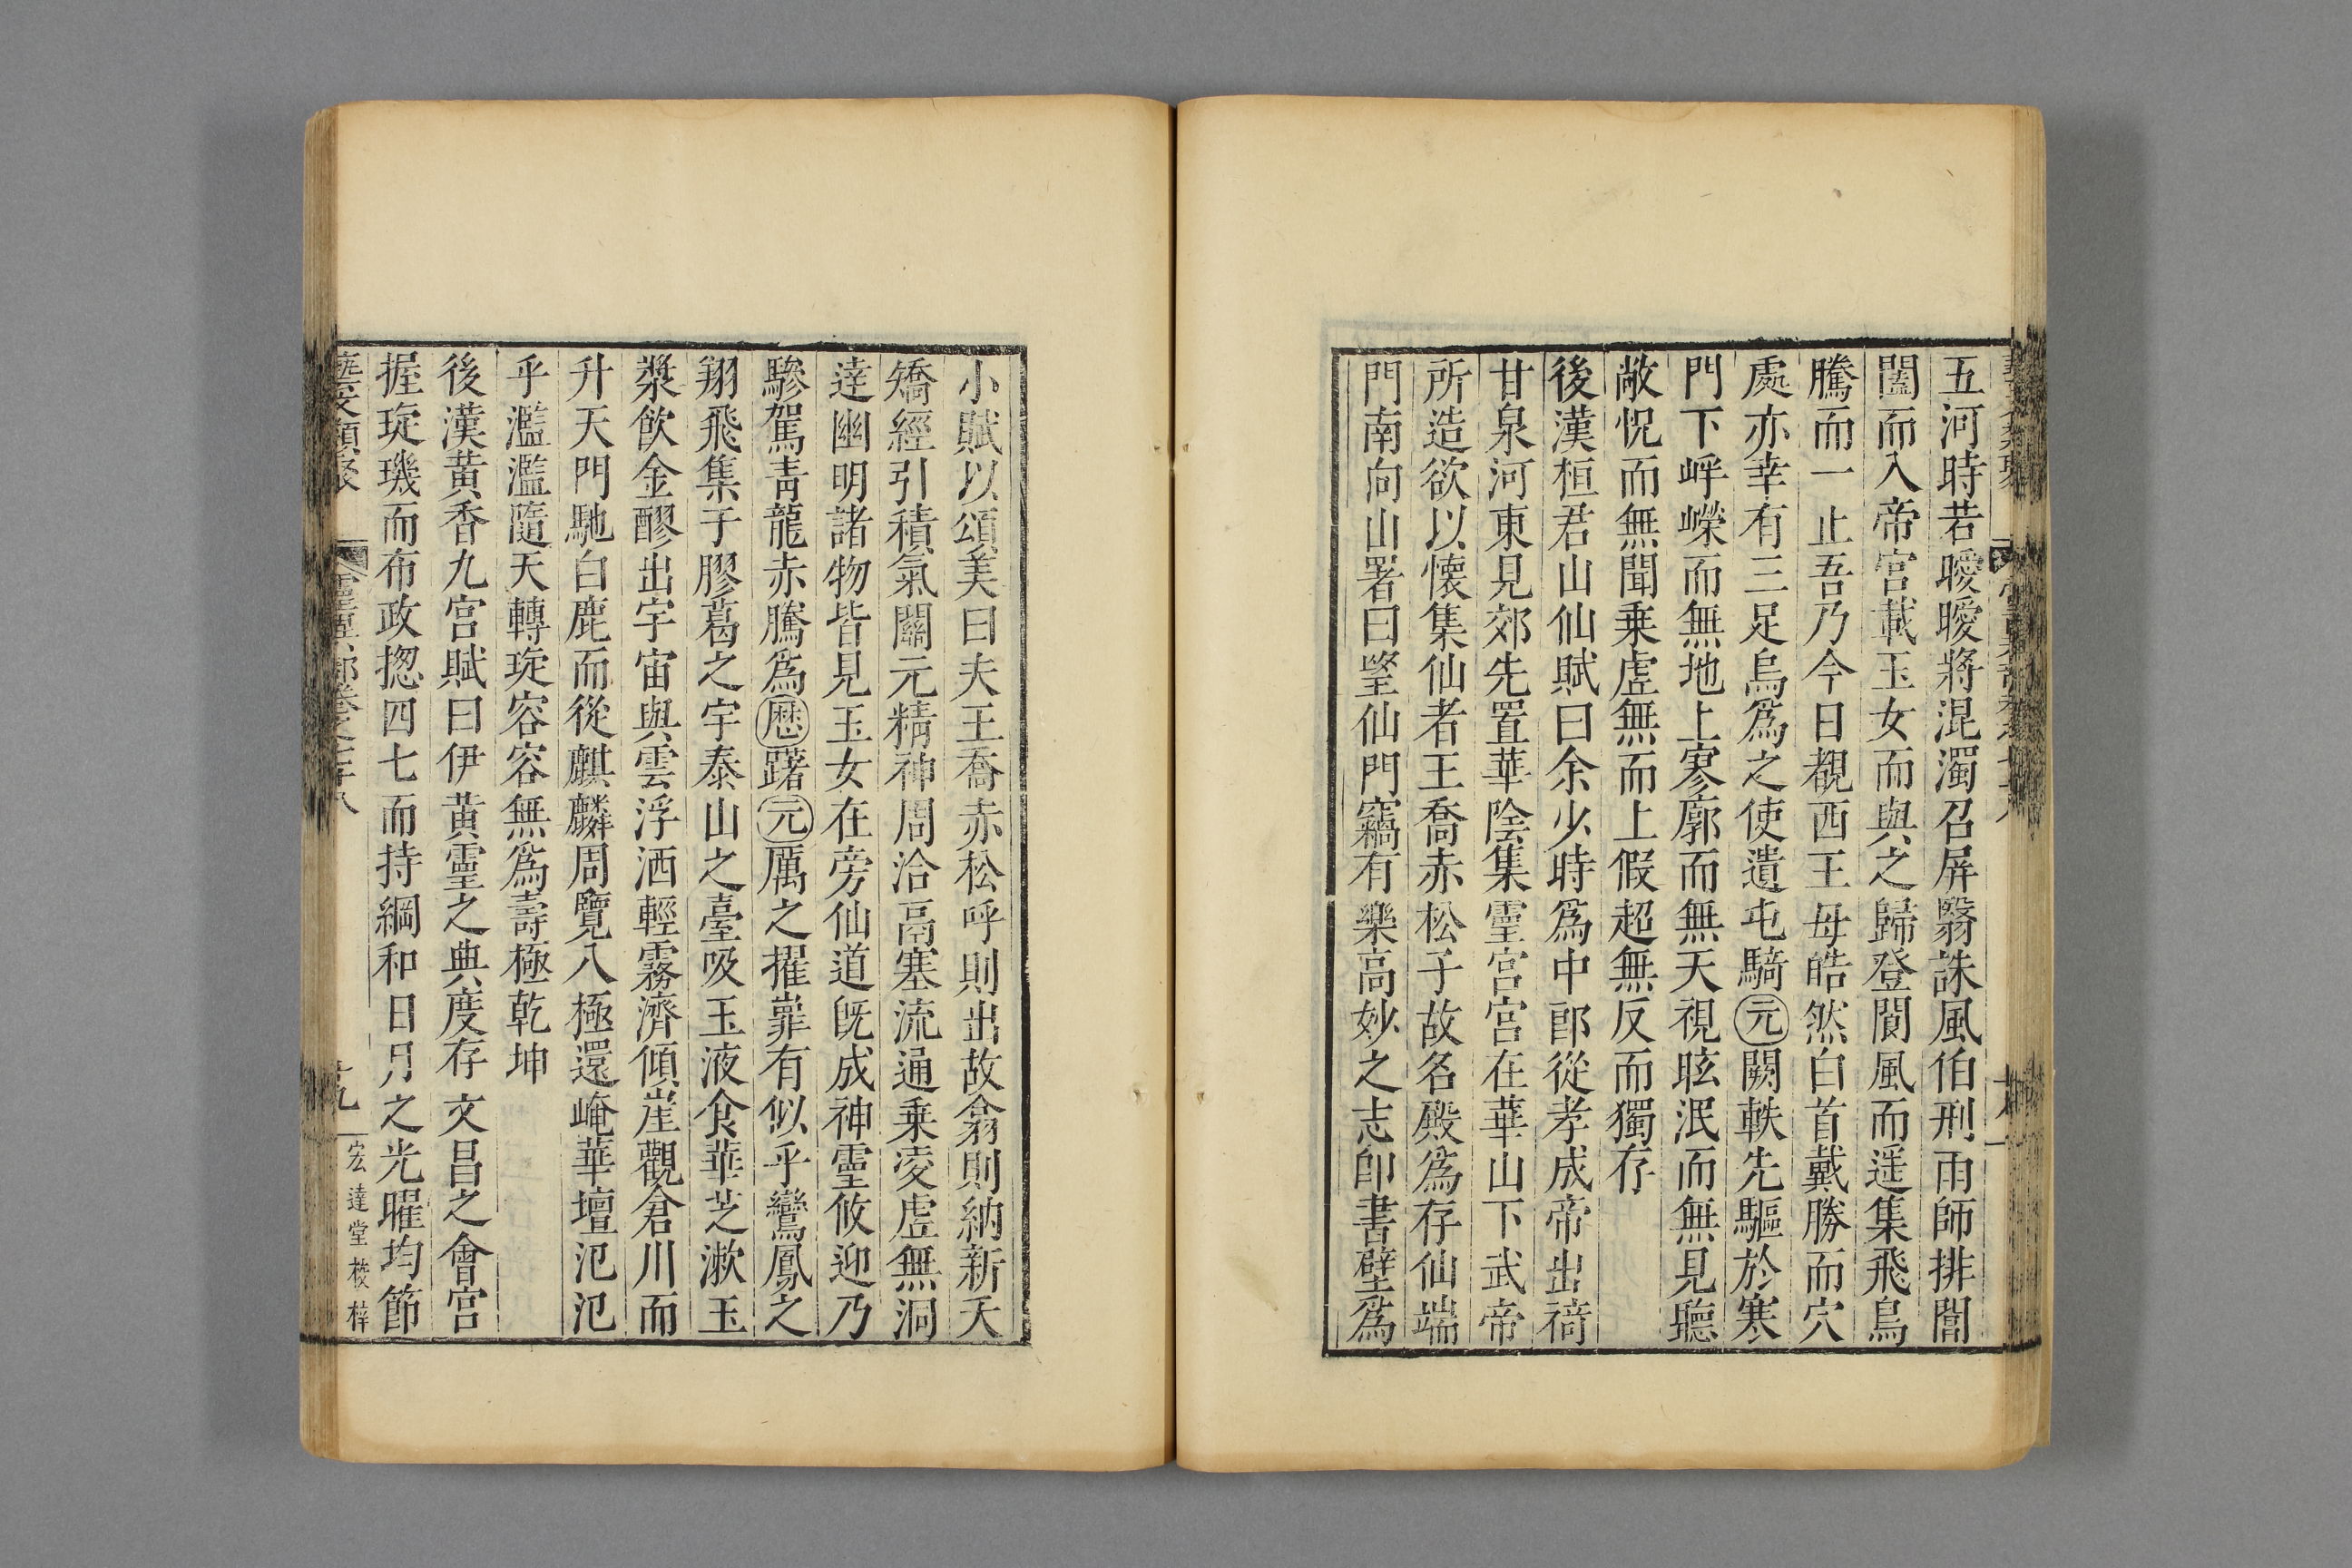 五河時若曖曖將混濁召屏翳誅風伯刑雨師排閶
闔而入帝宮載玉女而與之歸登閬風而遥集飛鳥
騰而一止吾乃今日覩西王母皓然白首戴勝而穴
處亦幸有三足烏爲之使遺屯騎元闕軼先驅於寒
門下崢嶸而無地上寥廓而無天視眩泯而無見聽
敞怳而無聞乗虛無而上假超無反而獨存
後漢桓君山仙賦曰余少時爲中郎從孝成帝出祠
甘泉河東見郊先置華陰集靈宮宮在華山下武帝
所造欲以懷集仙者王喬赤松子故名殿爲存仙端
門南向山署曰望仙門竊有樂高妙之志卽書壁爲
小賦以頌美曰夫王喬赤松呼則出故翕則納新夭
矯經引積氣關元精神周洽鬲塞流通乗凌虛無洞
達幽明諸物皆見玉女在旁仙道旣成神靈攸迎乃
驂駕青龍赤騰爲歷躇元厲之擢嶵有似乎鸞鳳之
翔飛集于膠葛之宇泰山之臺吸玉液食華芝漱玉
漿飲金醪出宇宙與雲浮洒輕霧濟傾崖觀倉川而
升天門馳白鹿而從麒麟周覽八極還崦華壇氾氾
乎濫濫隨天轉琁容容無爲壽極乾坤
後漢黃香九宮賦曰伊黃靈之典度存文昌之會宮
握琁璣而布政揔四七而持綱和日月之光曜均節
藝文類聚
靈異部卷之七十八
十九
宏達堂校梓